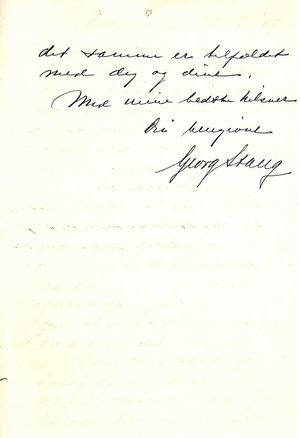 det samme er tilfældet
med dig og dine.
Med mine bedste hilsner
Din hengivne
Georg Stang